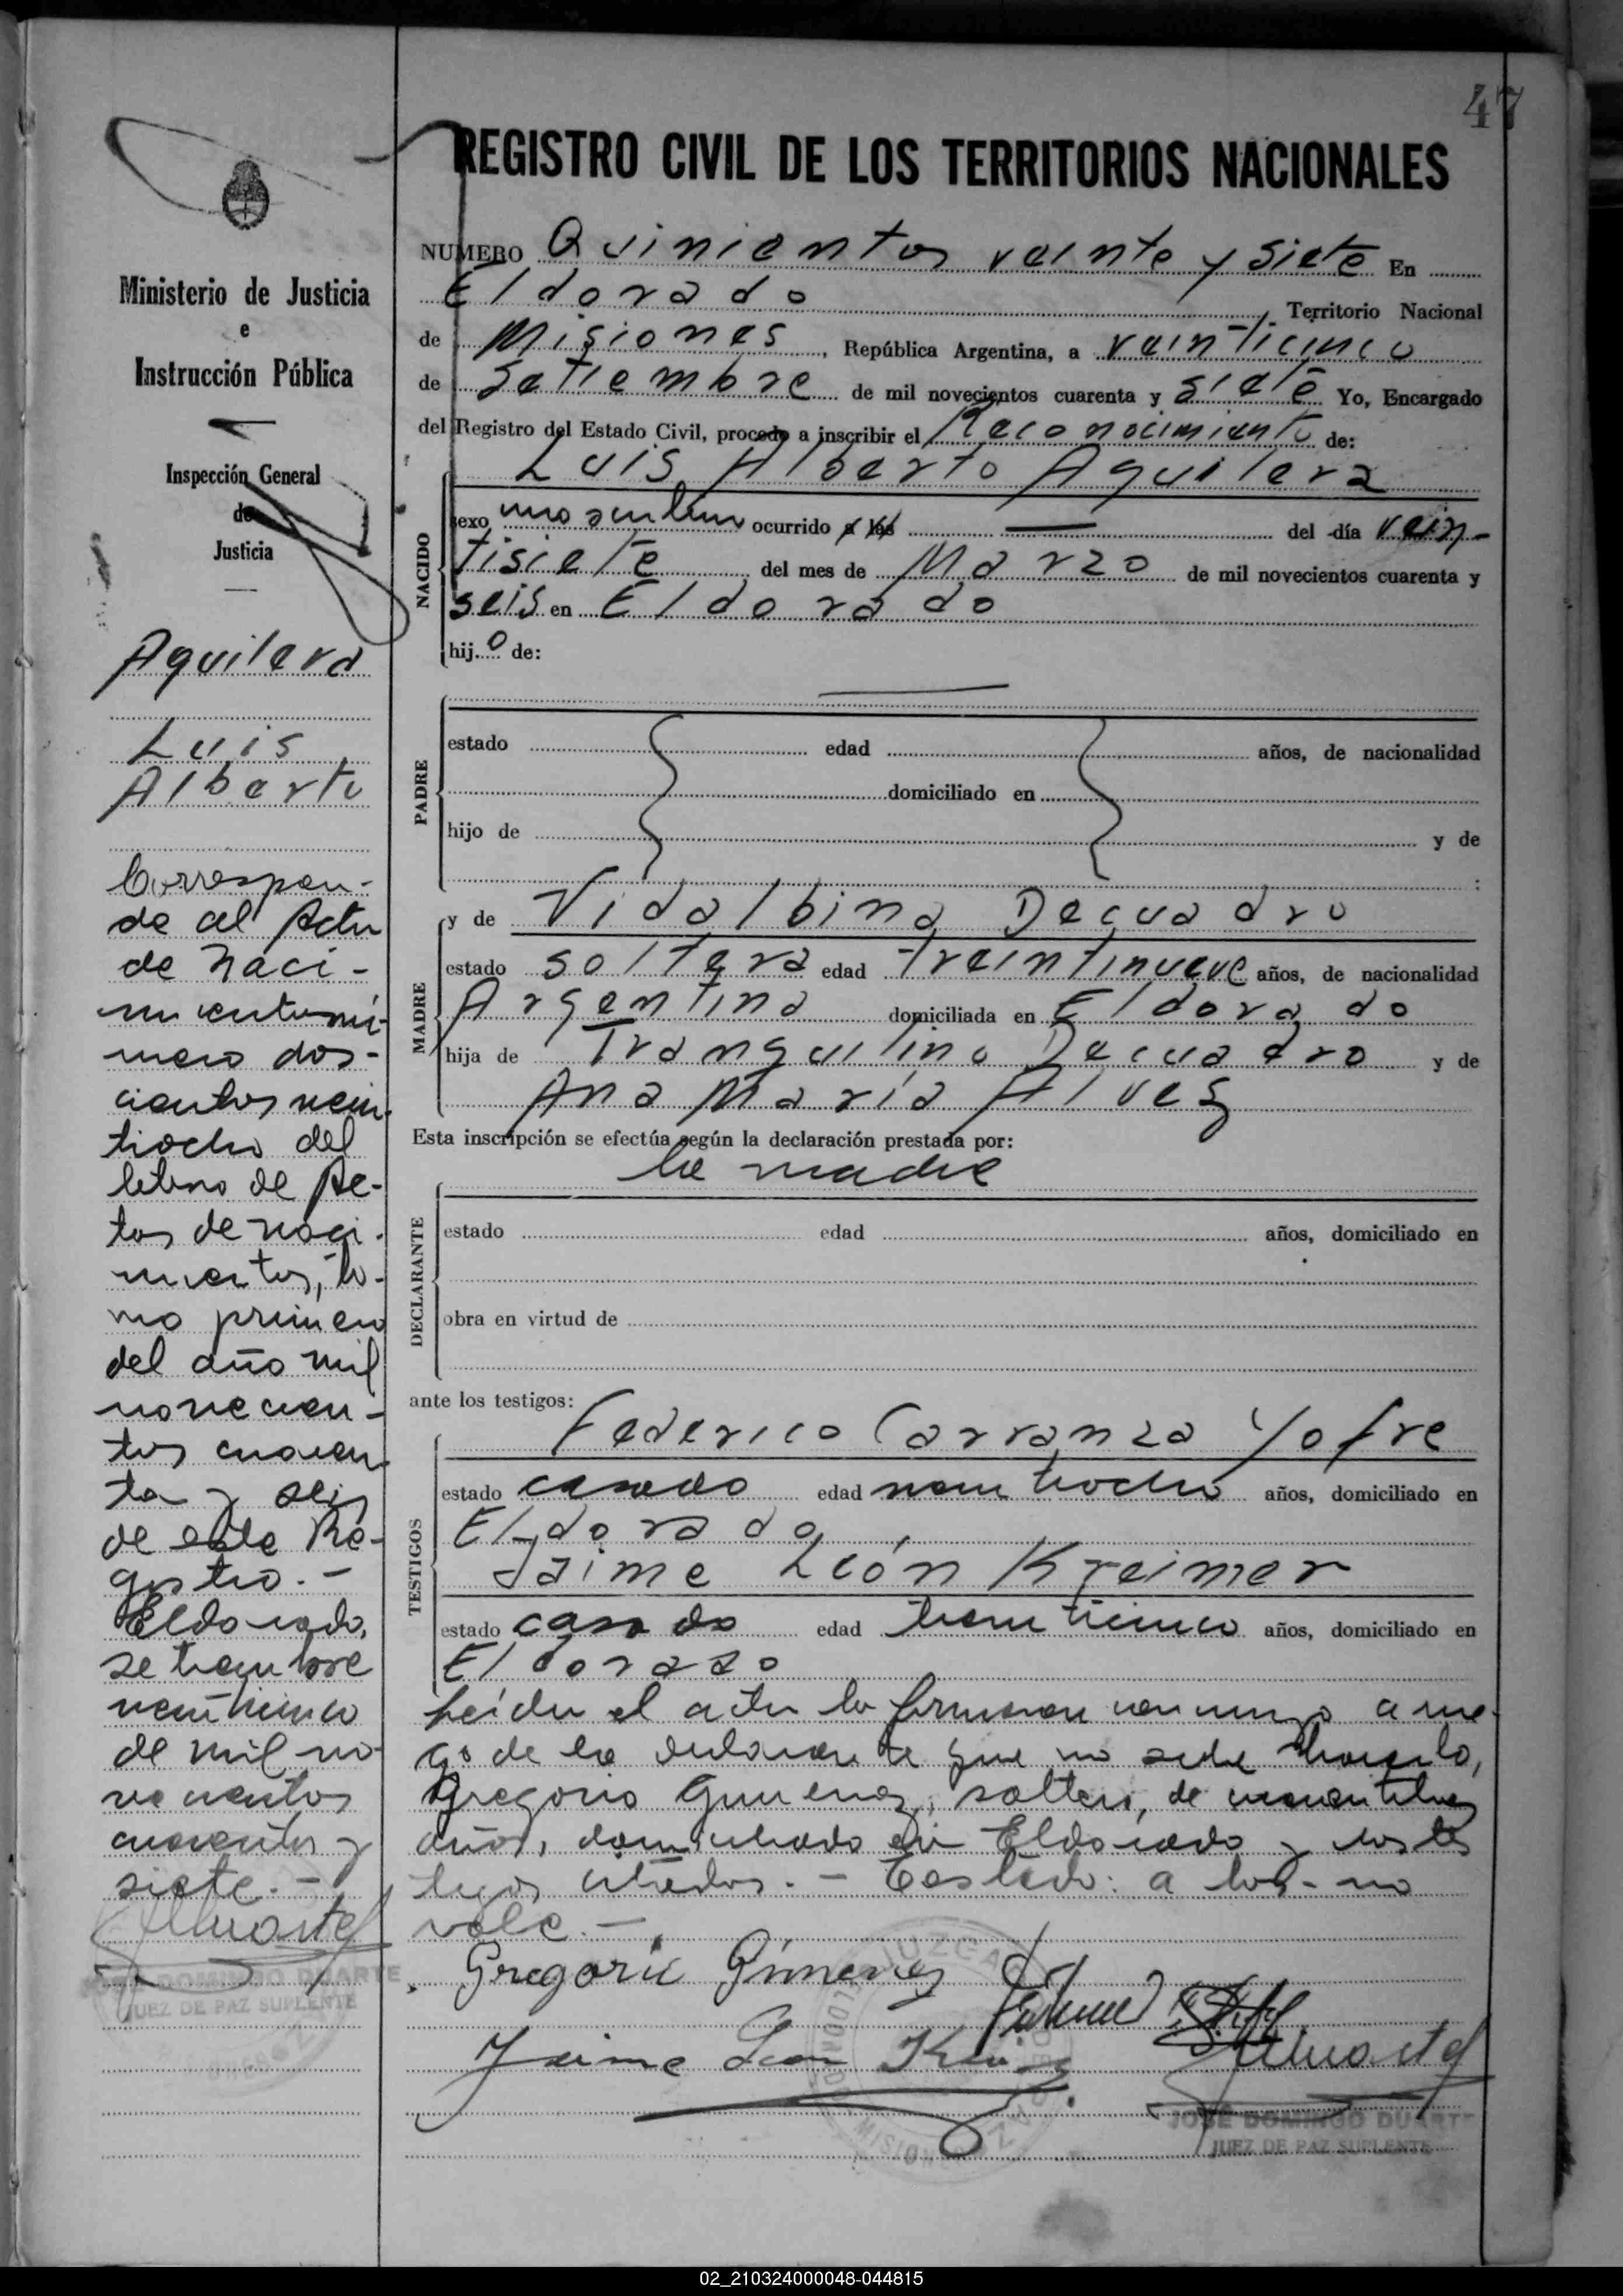 47
REGISTRO CIVIL DE LOS TERRITORIOS NACIONALES
Ministerio de Justicia
e
Instrucción Pública
Inspección General
de
Justicia
Aguilera
Luis
Alberto
Correspon-
de al Acta
de Naci-
miento nú-
mero dos-
cientos vein-
tiocho del
libro de Ac-
tas de naci-
mientos, to-
mo primero
del año mil
novecien-
tos cuaren-
ta y seis
de este Re-
gistro.-
Eldorado,
setiembre
veinticinco
de mil no-
vecientos
cuarenta y
siete.-
JOSE DOMINGO DUARTE
JUEZ DE PAZ SUPLENTE
NUMERO Quinientos veinte y siete En
Eldorado Territorio Nacional
de Misiones, República Argentina, a veinticinco
de Setiembre de mil novecientos cuarenta y siete Yo, Encargado
del Registro del Estado Civil, procedo a inscribir el Reconocimiento de:
Luis Alberto Aguilera
NACIDO
sexo masculino ocurrido a las — del día vein-
tisiete del mes de Marzo de mil novecientos cuarenta y
seis en Eldorado
hijo de:
PADRE
estado edad años, de nacionalidad
domiciliado en
hijo de y de
:
MADRE
y de Vidalbina Decuadro
estado soltera edad treintinueve años, de nacionalidad
Argentina domiciliada en Eldorado
hija de Tranquilino Decuadro y de
Ana María Alvez
Esta inscripción se efectúa según la declaración prestada por:
la madre
DECLARANTE
estado edad años, domiciliado en
obra en virtud de
ante los testigos:
TESTIGOS
Federico Carranza Yofre
estado casado edad veintiocho años, domiciliado en
Eldorado
Jaime León Kreimer
estado casado edad treinticinco años, domiciliado en
Eldorado
Leída el acta la firmaron conmigo a rue-
go de la declarante que no sabe hacerlo,
Gregorio Gimenez, soltero, de años, domiciliado en Eldorado y los tes
tigos citados.- Testado: a las- no
vale.-
Gregorio Gimenez
Jaime Leon
JOSE DOMINGO DUARTE
JUEZ DE PAZ SUPLENTE
02_210324000048-044815